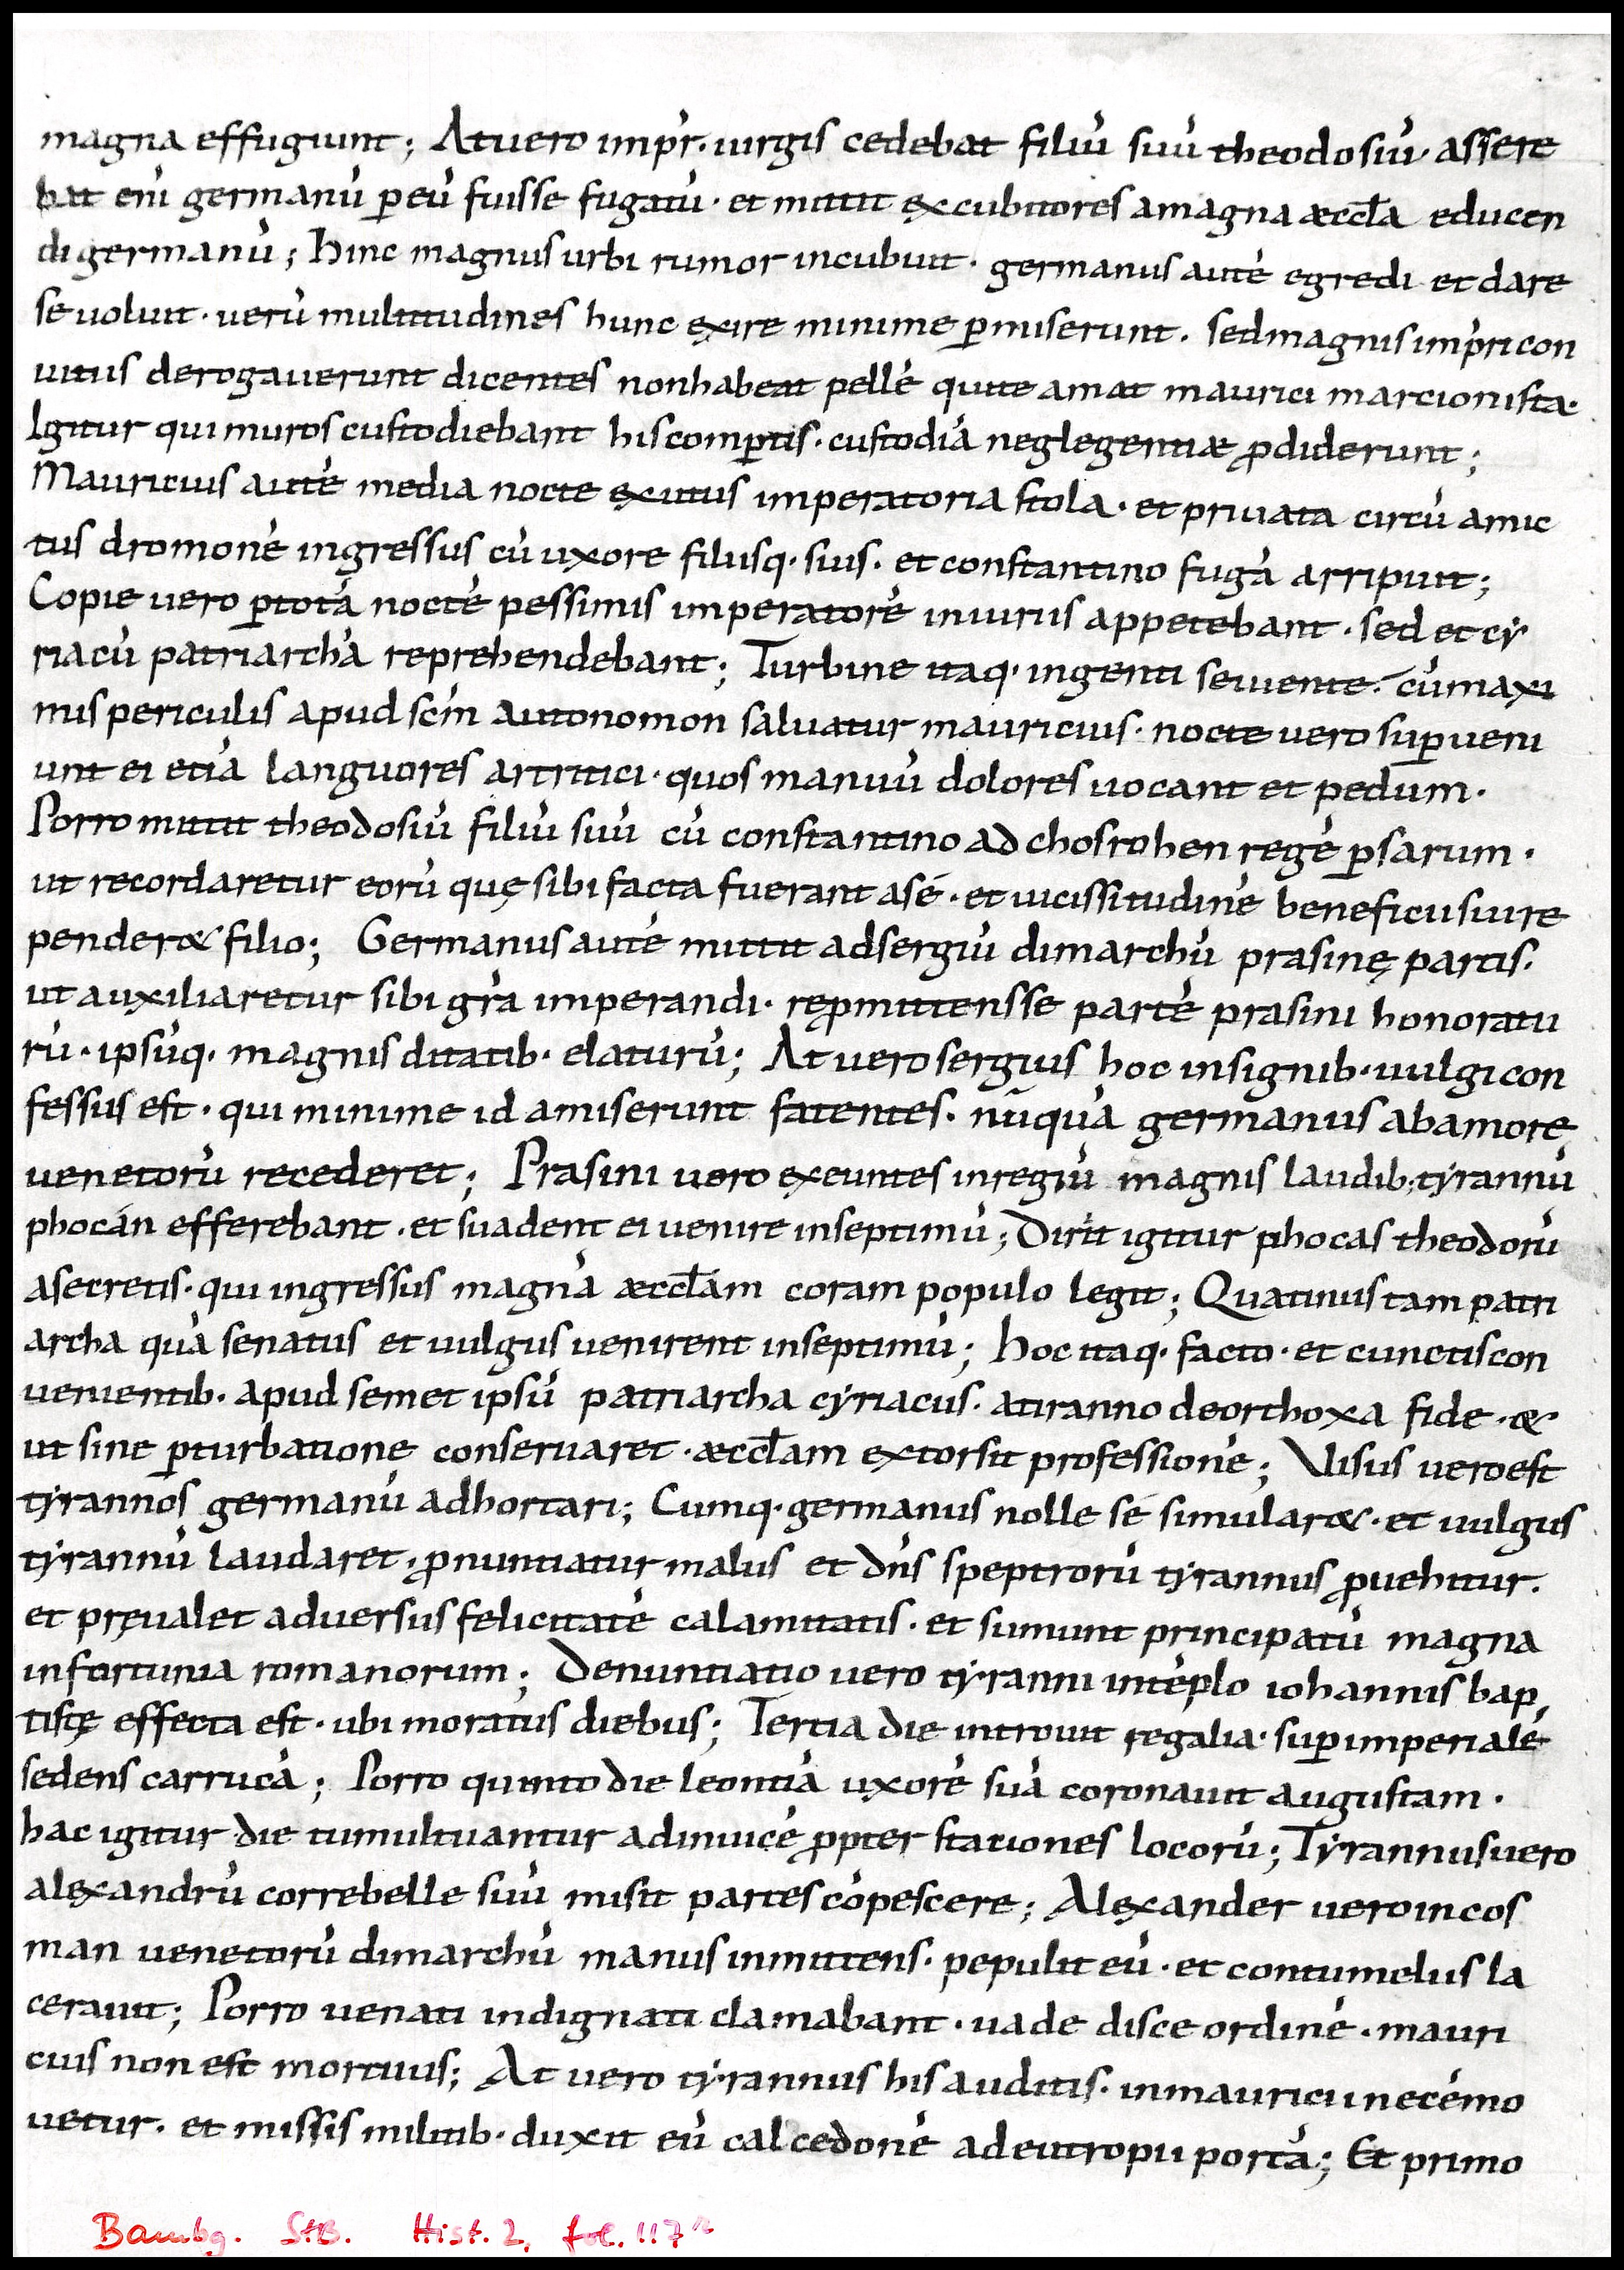 magna effugiunt; Atuero imp̄r· uirgis cedebat filiū suū theodosiū· assere
bat eni̅ germanū p̲eū fuisse fugatū· et mittit excubitores amagna æccl̅a educen
di germanū; hinc magnus urbi rumor incubuit· germanus autē egredi et dare
se uoluit· uerū multitudines hunc exire minime p̲miserunt. sedmagnis imp̄ri con
uitiis derogauerunt dicentes nonhabeat pellē quite amat maurici marcionista·
Igitur qui muros custodiebant his comp̲tis· custodiā neglegentiæ ꝓdiderunt;
Mauricius autē media nocte exutus imperatoria stola· et priuata circū amic
tus dromonē ingressus cū uxore filiisq· suis· et constantino fugā arripuit;
Copie uero p̲totā noctē pessimis imperatorē iniuriis appetebant· sed et cy
riacū patriarchā reprehendebant; Turbine itaq· ingenti seuiente· cūmaxi
mis periculis apud sc̅m autonomon saluatur mauricius· nocte uero sup̲ueni
unt ei etiā languores artritici· quos manuū dolores uocant et pedum·
Porro mittit theodosiū filiū suū cū constantino ad chosrohen regē p̲sarum·
ut recordaretur eorū quę sibi facta fuerant asé· et uicissitudinē beneficii siui re
pender& filio; Germanus autē mittit adsergiū dimarchū prasinę partis·
ut auxiliaretur sibi gr̅a imperandi· reꝓmittensse partē prasini honoratu
rū· ipsūq· magnis ditatib· elaturū; At uero sergius hoc insignib· uulgi con
fessus est· qui minime id amiserunt fatentes· nūquā germanus abamore
uenetorū recederet; Prasini uero exeuntes inregiū magnis laudib; tyrannū
phocán efferebant· et suadent ei uenire inseptimū; Dirit igitur phocas theodorū
asecretis· qui ingressus magnā æccl̅am coram populo legit; Quatinus tam patri
archa quā senatus et uulgus uenirent inseptimū; hoc itaq· facto· et cunctis con
uenientib· apud semet ipsū patriarcha cyriacus· atiranno deorthoxa fide· &
ut sine p̲turbatione conseruaret· æccl̅am extorsit professionē; Visus uero est
tyrannos germanū adhortari; Cumq· germanus nolle sé simular&· et uulgus
tyrannū laudaret· ꝓnuntiatur malus et dn̅s speptrorū tyrannus ꝓuehitur.
et pręualet aduersus felicitatē calamitatis· et sumunt principatū magna
infortunia romanorum; Denuntiatio uero tyranni intēplo iohannis bap
tistę effecta est· ubi moratus diebus; Tertia die introiit regalia· sup̲ imperialē
sedens carrucā; Porro quinto die leontiā uxorē suā coronauit augustam·
hac igitur die tumultuantur adinuicē ꝓpter stationes locorū; Tyrannus uero
alexandrū correbelle suū misit partes cōpescere; Alexander uero in cos
man uenetorū dimarchū manus inmittens· pepulit eū· et contumeliis la
cerauit; Porro uenati indignati clamabant· uade disce ordinē· mauri
cius non est mortuus; At uero tyrannus his auditis· inmauricii necēmo
uetur· et missis militib· duxit eū calcedonē ad eutropii portā; Et primo
Bambg. StB. Hist. 2, fol. 117r